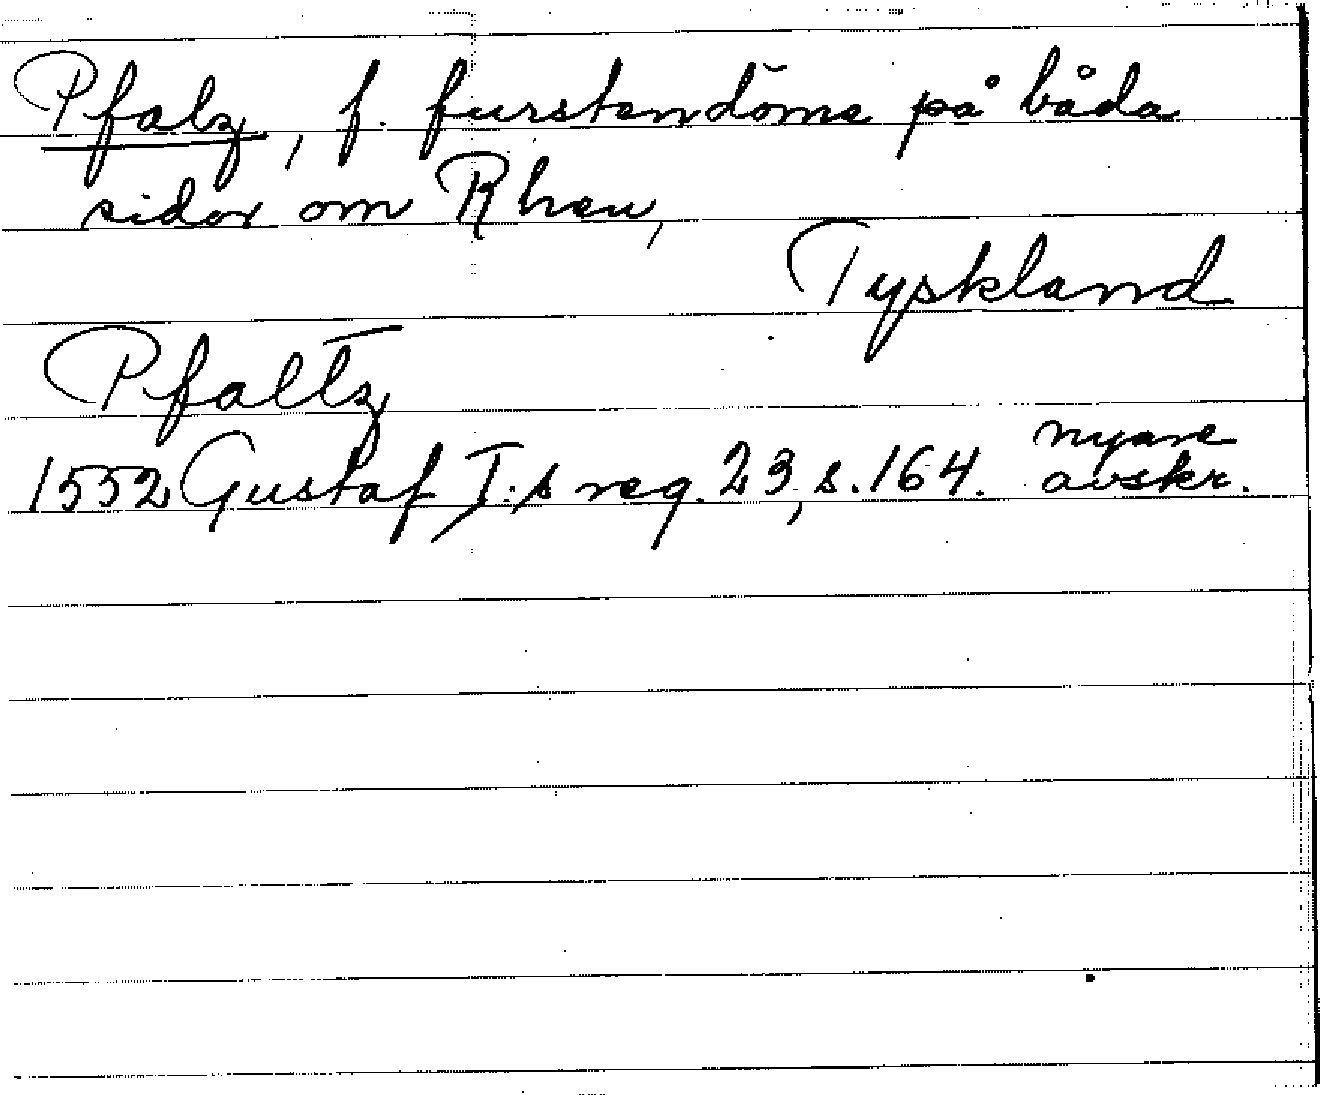 Pfalz, f. furstendöme på båda
sidor om Rhen,
Tyskland
Pfaltz
1552 Gustaf I:s reg. 23, s. 164. nyare
avskr.